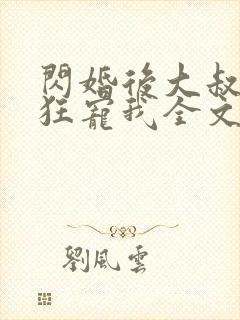 閃婚後大叔
狂寵我全文
劉風雲